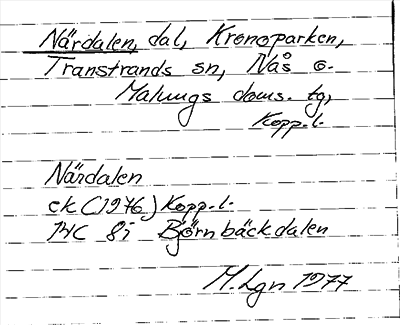 Närdalen, dal, Kronoparken,
Transtrands sn, Nås o.
Malungs doms. tg,
Kopp.l.
Närdalen
ek (1976) Kopp.l.
14C 8i Björnbäckdalen
M.Lgn 1977